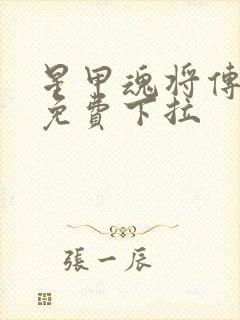 星甲魂将傳
免費下拉
張一辰